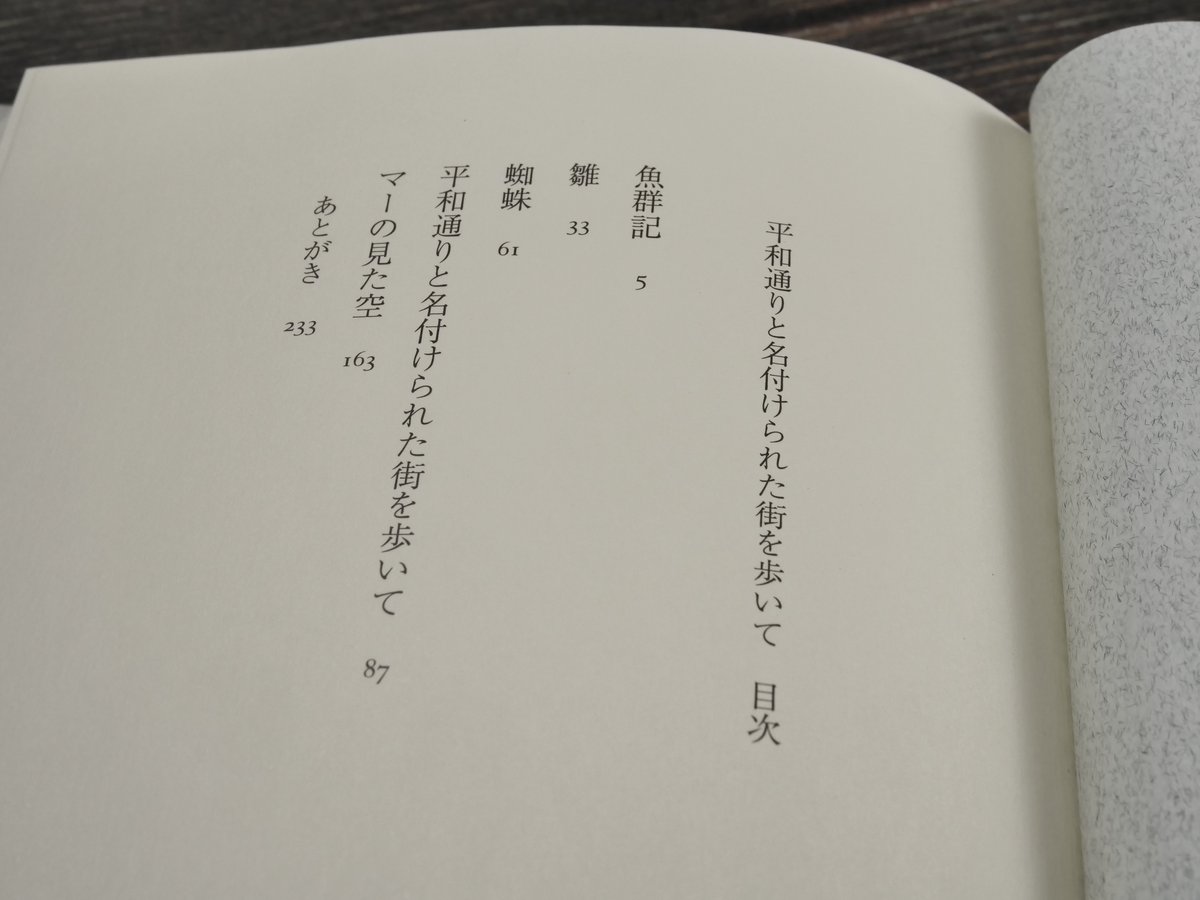 平和通りと名付けられた街を歩いて　目次
魚群記　5
雛　33
蜘蛛　61
平和通りと名付けられた街を歩いて　87
マーの見た空　163
あとがき　233